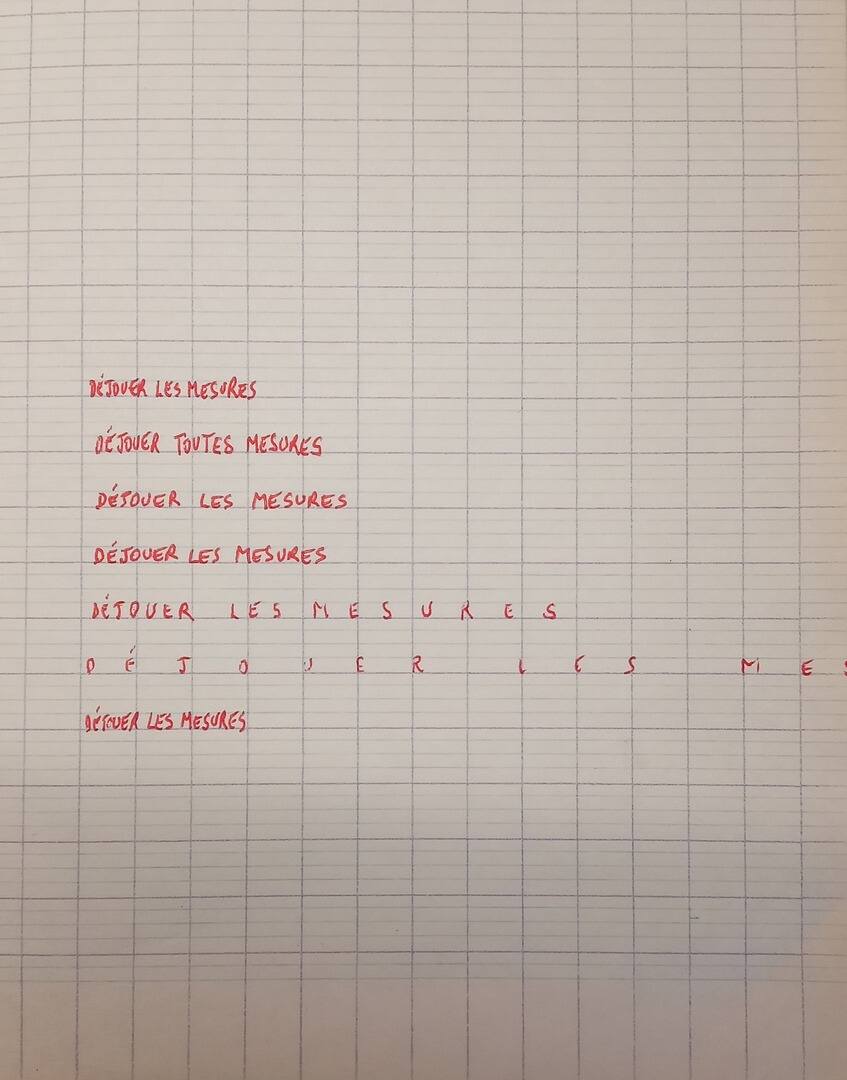 DÉJOUER LES MESURES
DÉJOUER TOUTES MESURES
DÉJOUER LES MESURES
DÉJOUER LES MESURES
DÉJOUER LES MESURES
DÉJOUER LES MES
DÉJOUER LES MESURES